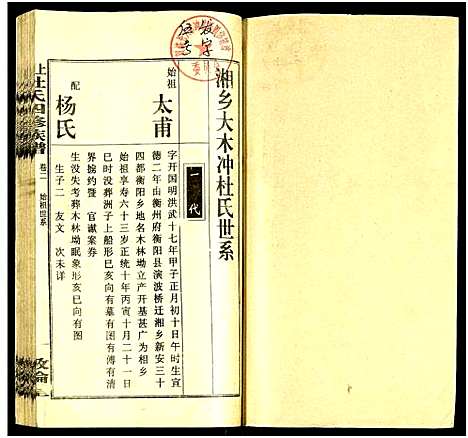 湘乡大木冲杜氏世系
一代
始祖
太甫
字开国明洪武十七年甲子正月初十日午时生宣
德二年由衡州府衡阳县演波桥迁湘乡新安三十
四都衡阳乡地名木林坳立产开基甚广为相乡
始祖享寿六十三岁正统十年丙寅十月二十一日
巳时没葬洲子上船形巳亥向有墓有图有傅有清
界掳约暨 官诚案券
配
杨氏
生没失考葬木林坳眠象形亥巳向有图
生子二 友文 次未详
上杜氏四修族谱
卷二
始祖世系
敦伦